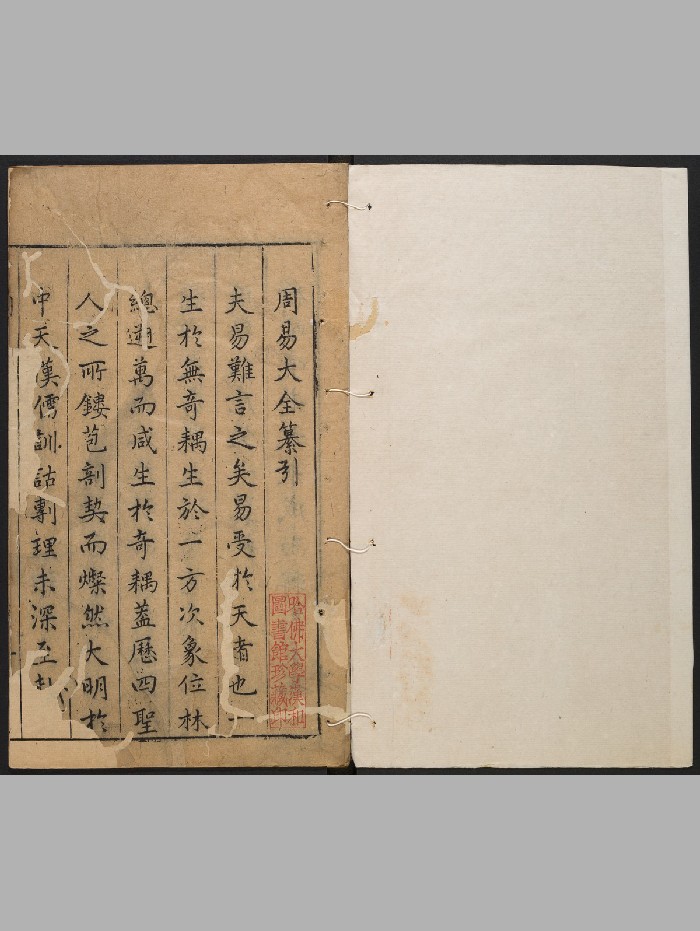 周易大全纂引
夫易難言之矣易受於天者也一
生於無奇耦生於一方次象位林
總遡萬而咸生於奇耦葢歷四聖
人之所鏤苞剖契而燦然大明於
中天漢儒訓詁剸理未深至
哈佛大學漢和
圖書館珍藏印